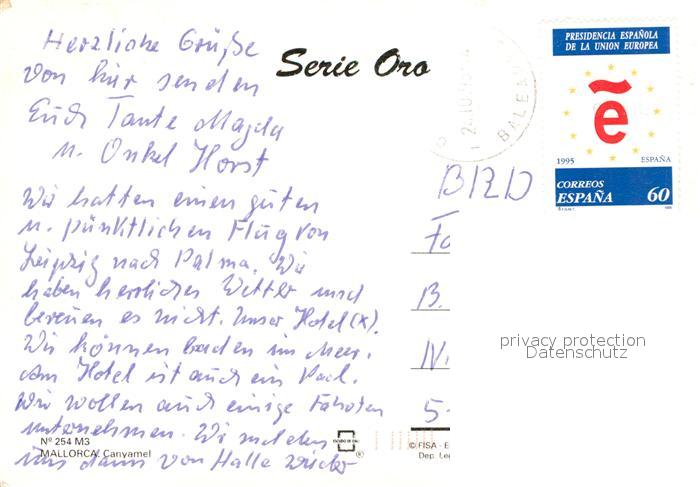 Herzliche Grüße
von hier senden
Euch Tante Magda
u. Onkel Horst
Wir hatten einen guten
u. pünktlichen Flug von
Leipzig nach Palma. Wir
haben herrliches Wetter und
bereuen es nicht. Unser Hotel (x).
Wir können baden im Meer.
Am Hotel ist auch ein Pool.
Wir wollen auch einige Fahrten
unternehmen. Wir melden
uns dann von Halle wieder
Serie Oro
BALEA
PRESIDENCIA ESPAÑOLA
DE LA UNION EUROPEA
e
1995 ESPAÑA
CORREOS
ESPAÑA 60
BRD
Fa
B.
N.
5-
privacy protection
Datenschutz
Nº 254 M3
MALLORCA. Canyamel
ESCUDO DE ORO
®
© FISA - E
Dep. Leg